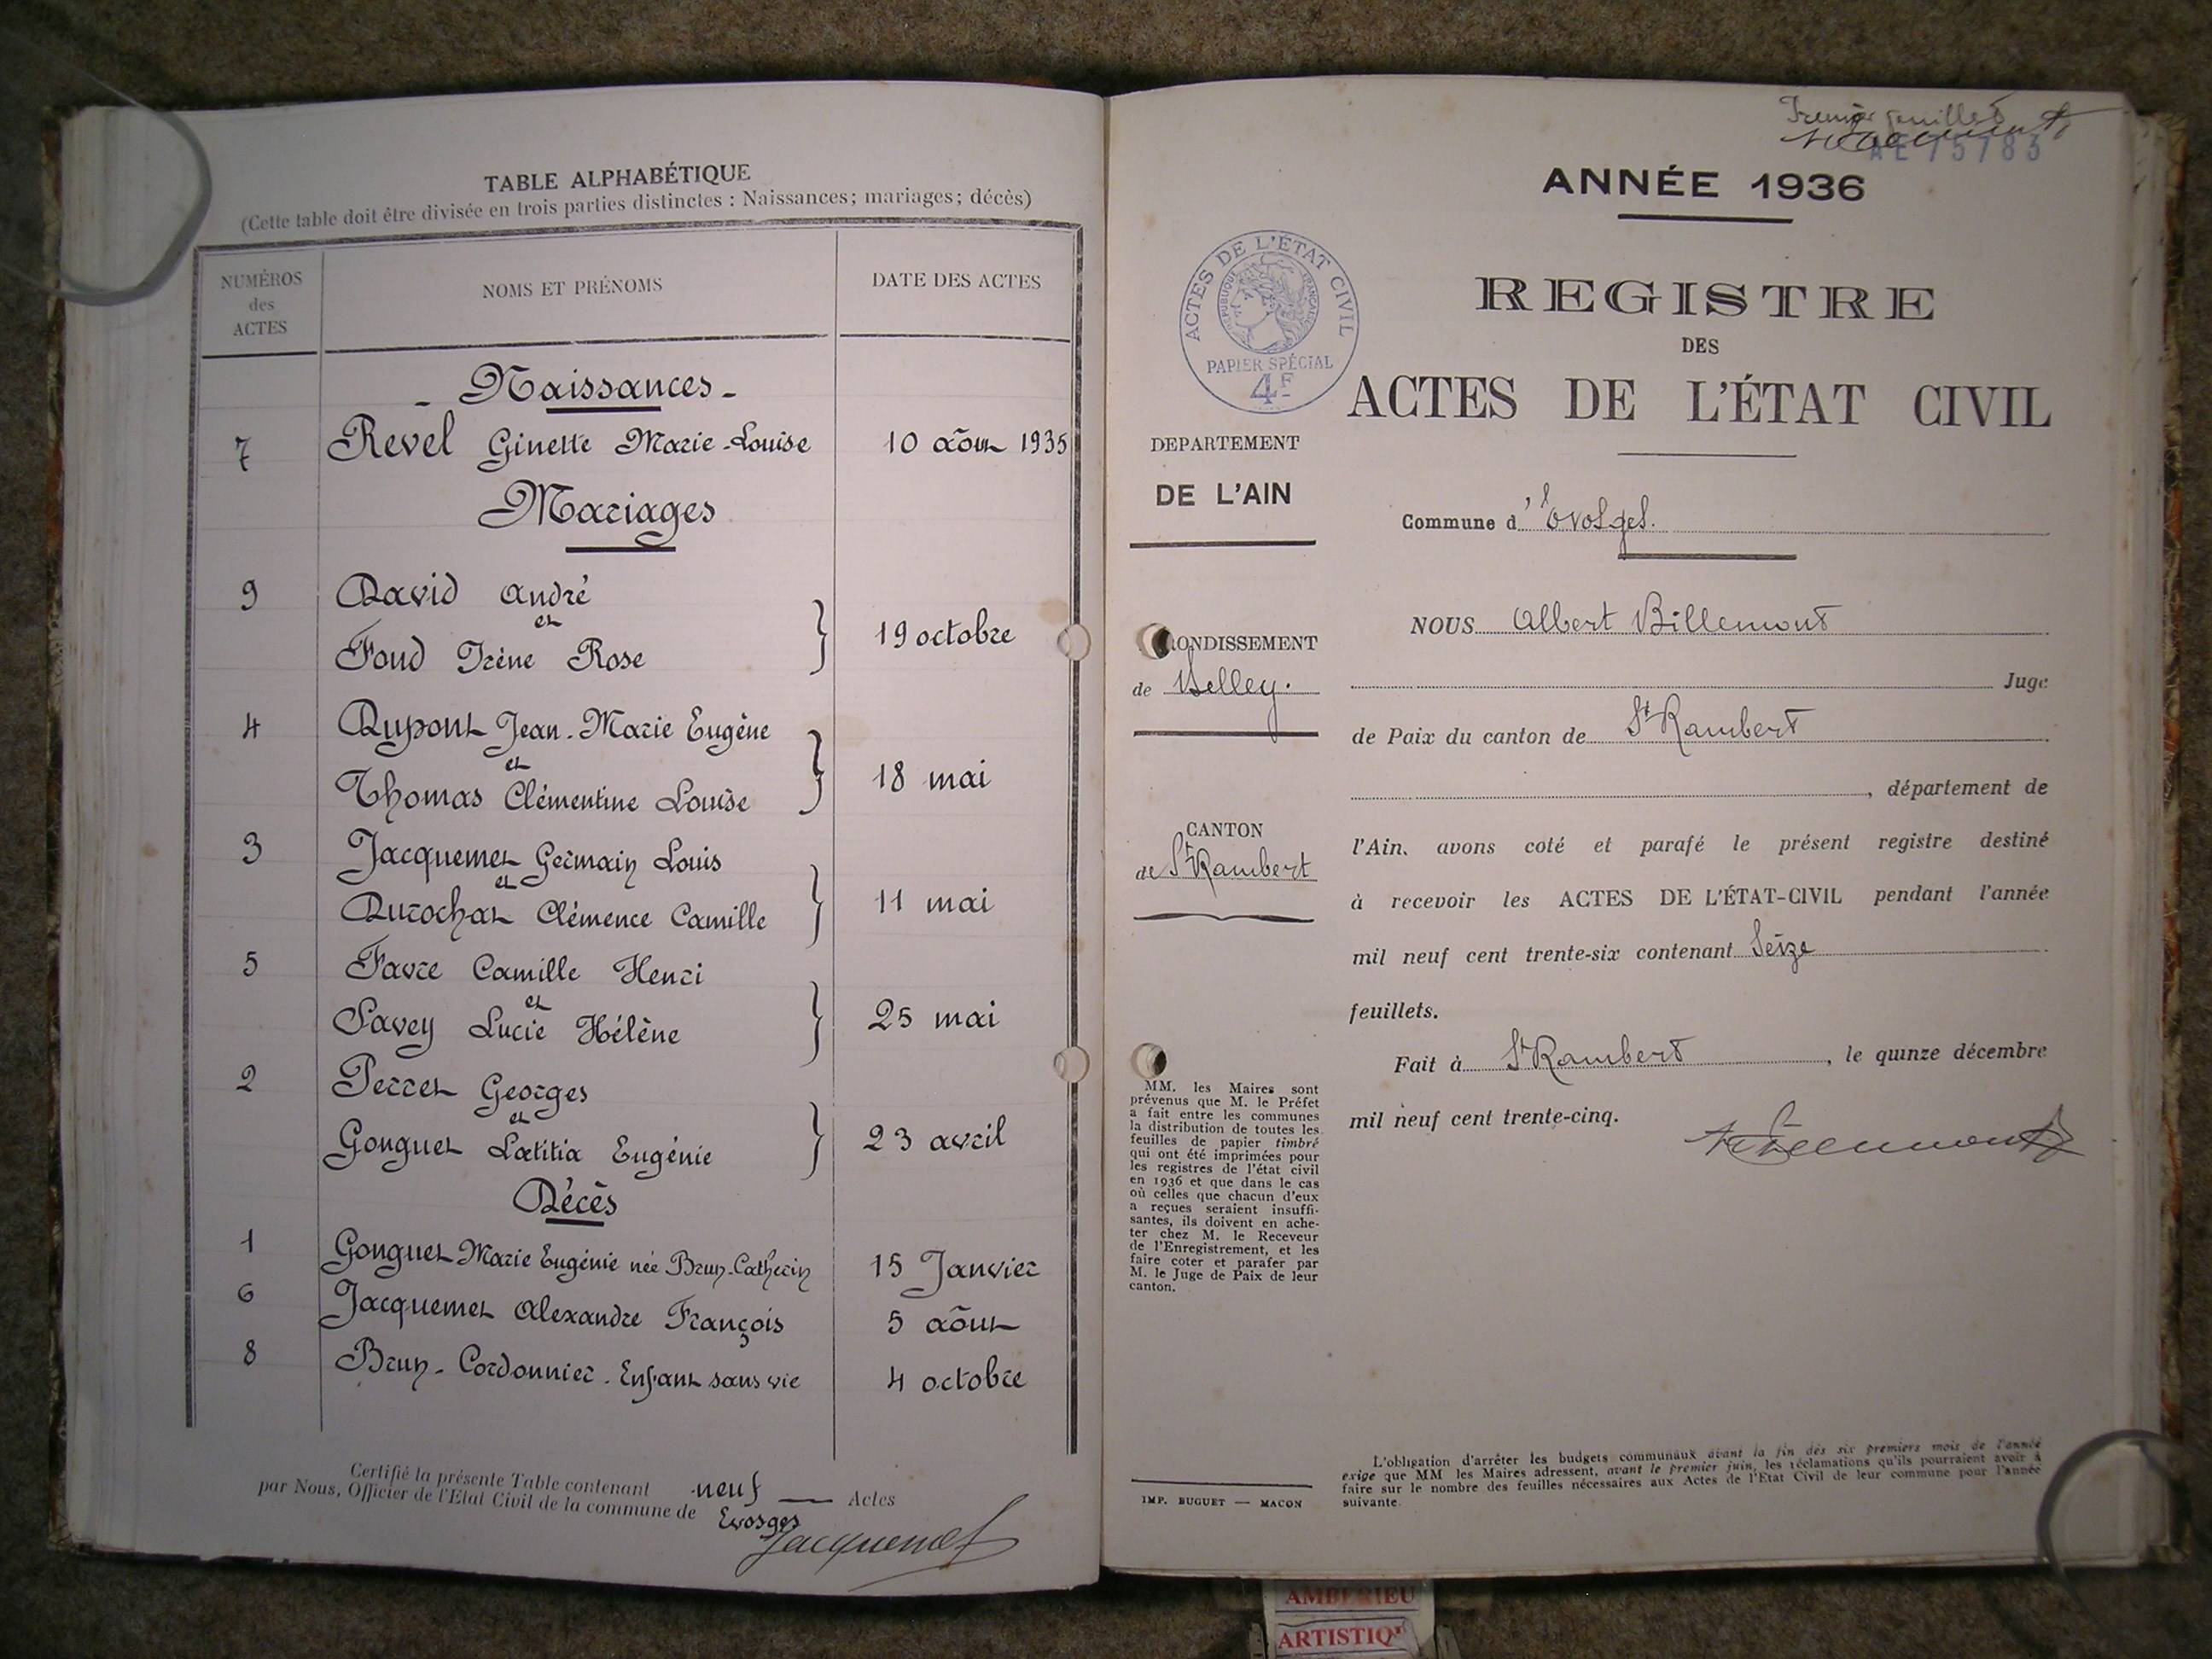 TABLE ALPHABÉTIQUE
(Cette table doit être divisée en trois parties distinctes : Naissances; mariages; décès)
NUMÉROS des ACTES
NOMS ET PRÉNOMS
DATE DES ACTES
- Naissances -
7 Revel Ginette Marie-Louise 10 août 1935
Mariages
9 David André
et
Fond Irène Rose
19 octobre
4 Dupont Jean-Marie Eugène
et
Thomas Clémentine Louise
18 mai
3 Jacquemet Germain Louis
et
Durochat Clémence Camille
11 mai
5 Favre Camille Henri
et
Savey Lucie Hélène
25 mai
2 Perret Georges
et
Gonguet Lætitia Eugénie
23 avril
Décès
1 Gonguet Marie Eugénie née Brun-Catherin 15 Janvier
6 Jacquemet Alexandre François 5 août
8 Brun-Cordonnier. Enfant sans vie 4 octobre
Certifié la présente Table contenant neuf — Actes
par Nous, Officier de l'Etat Civil de la commune de Evosges
Jacquemet
feuillet
AE 75783
ANNÉE 1936
ACTES DE L'ÉTAT CIVIL
RÉPUBLIQUE FRANÇAISE
PAPIER SPÉCIAL
4F
REGISTRE
DES
ACTES DE L'ÉTAT CIVIL
DEPARTEMENT
DE L'AIN
Commune d'Evosges.
NOUS Albert Billemont
RONDISSEMENT
de Belley.
Juge
de Paix du canton de St Rambert
, département de
CANTON
de St Rambert
l'Ain, avons coté et parafé le présent registre destiné
à recevoir les ACTES DE L'ÉTAT-CIVIL pendant l'année
mil neuf cent trente-six contenant Seize
feuillets.
Fait à St Rambert, le quinze décembre
mil neuf cent trente-cinq.
MM. les Maires sont
prévenus que M. le Préfet
a fait entre les communes
la distribution de toutes les
feuilles de papier timbré
qui ont été imprimées pour
les registres de l'état civil
en 1936 et que dans le cas
où celles que chacun d'eux
a reçues seraient insuffi-
santes, ils doivent en ache-
ter chez M. le Receveur
de l'Enregistrement, et les
faire coter et parafer par
M. le Juge de Paix de leur
canton.
IMP. BUGUET — MACON
L'obligation d'arrêter les budgets communaux avant la fin des six premiers mois de l'année
exige que MM les Maires adressent, avant le premier juin, les réclamations qu'ils pourraient avoir à
faire sur le nombre des feuilles nécessaires aux Actes de l'Etat Civil de leur commune pour l'année
suivante.
AMBERIEU
ARTISTIQ